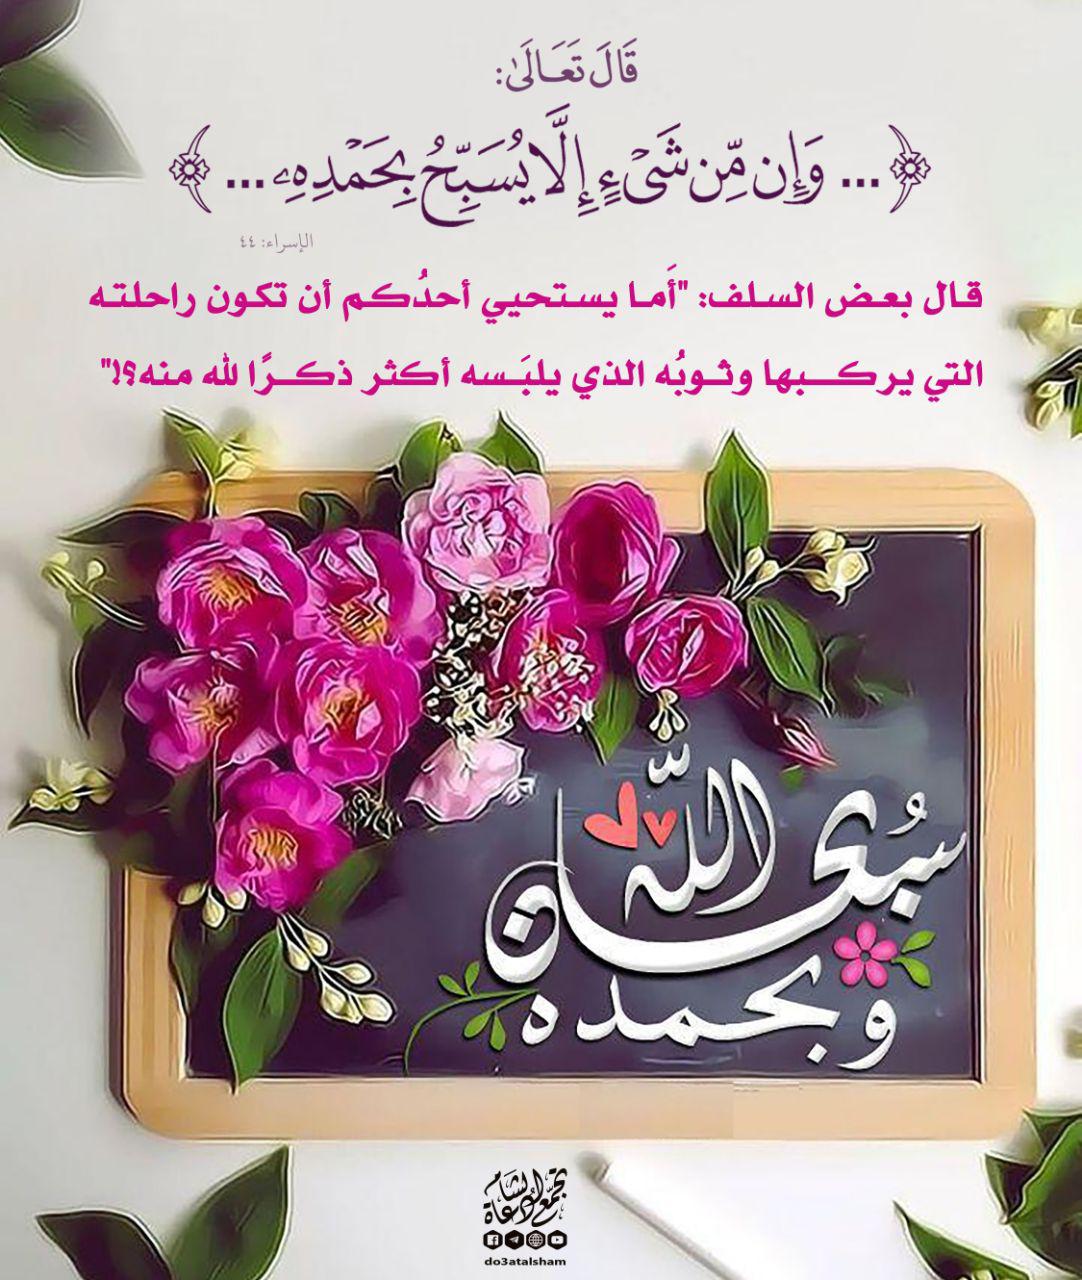 قَالَ تَعَـالَىٰ:
﴿... وَإِن مِّن شَىْءٍ إِلَّا يُسَبِّحُ بِحَمْدِهِۦ ...﴾
الإسراء: ٤٤
قال بعض السلف: "أَما يستحيي أحدُكم أن تكون راحلته
التي يركبها وثوبُه الذي يلبَسه أكثر ذكرًا لله منه؟!"
سُبحان اللّٰه
وبحمده
تجمّع دعاة الشام
do3atalsham